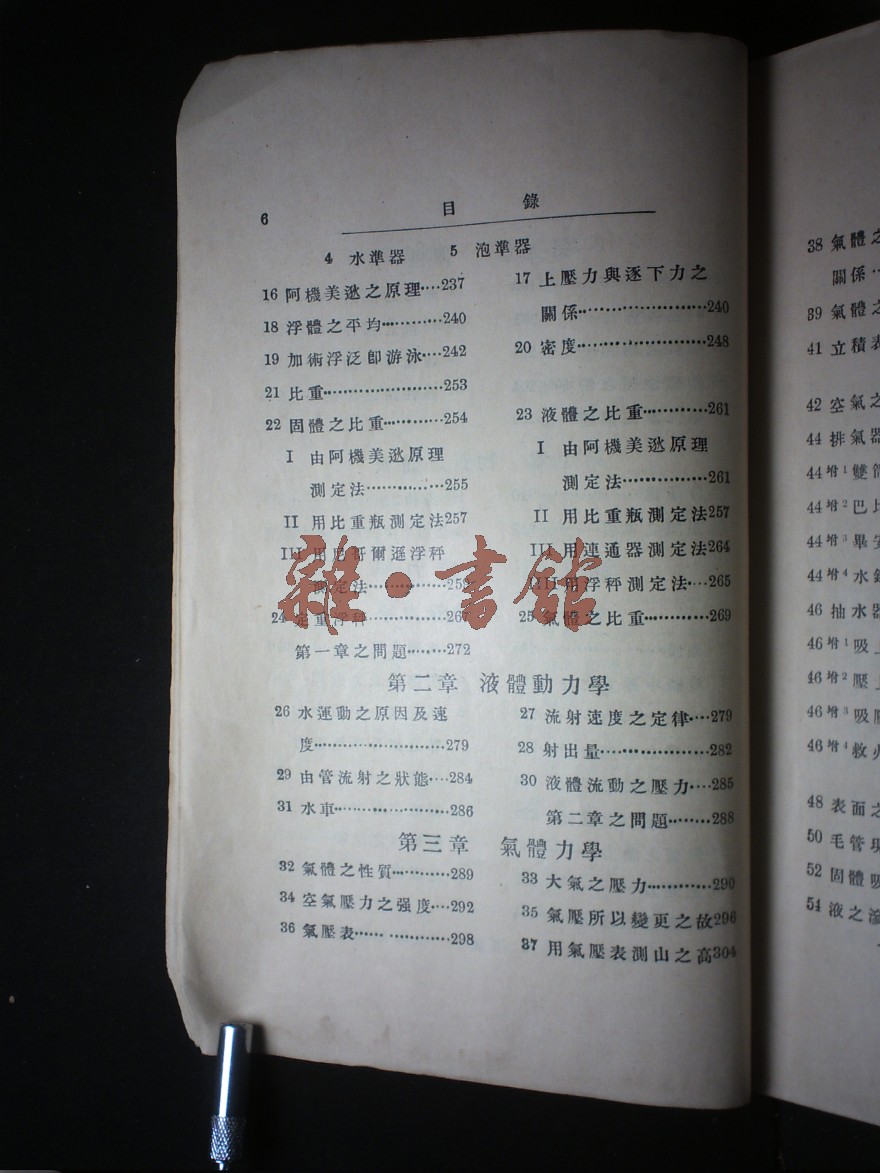 6
目 錄
4 水準器 5 泡準器
16 阿機美逖之原理····237
17 上壓力與逐下力之
關係··················240
18 浮體之平均············240
19 加術浮泛卽游泳····242
20 密度··················248
21 比重··················253
22 固體之比重············254
23 液體之比重············261
I 由阿機美逖原理
測定法···············255
I 由阿機美逖原理
測定法···············261
II 用比重瓶測定法257
II 用比重瓶測定法257
III 用尼哥爾遜浮秤
測定法···············259
III 用連通器測定法264
III 用浮秤測定法····265
24 定重浮秤···············267
25 氣體之比重············269
第一章之問題········272
第二章 液體動力學
26 水運動之原因及速
度·····················279
27 流射速度之定律····279
28 射出量··················282
29 由管流射之狀態····284
30 液體流動之壓力····285
31 水車·····················286
第二章之問題········288
第三章 氣體力學
32 氣體之性質············289
33 大氣之壓力············290
34 空氣壓力之强度····292
35 氣壓所以變更之故296
36 氣壓表·················298
37 用氣壓表測山之高304
38 氣體之
關係··
39 氣體之
41 立積表
42 空氣之
44 排氣器
44增1 雙筒
44增2 巴比
44增3 畢安
44增4 水銀
46 抽水器
46增1 吸上
46增2 壓上
46增3 吸壓
46增4 救火
48 表面之
50 毛管現
52 固體吸
54 液之滲
雜·書館